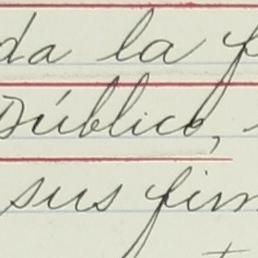 da la
público,
sus fir